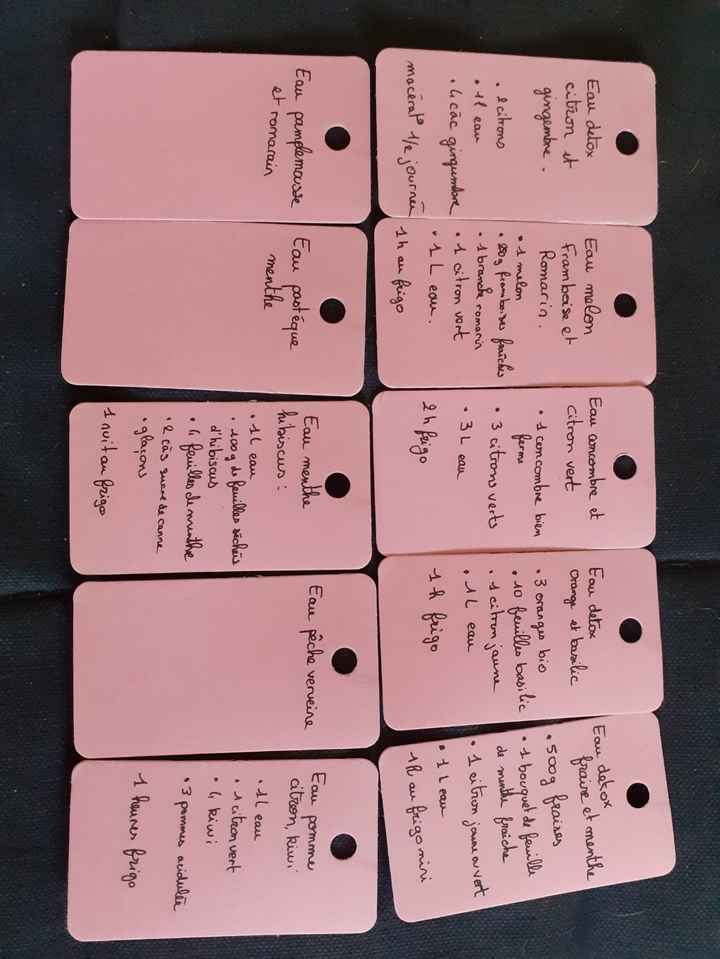 Eau detox
citron et
gingembre.
• 2 citrons
• 1l eau
• 4 càc gingembre
macérat° 1/2 journée
Eau melon
Framboise et
Romarin.
• 1 melon
• framboises fraîches
• 1 branche romarin
• 1 citron vert
• 1 L eau.
1h au frigo
Eau concombre et
citron vert
• 1 concombre bien
ferme
• 3 citrons verts
• 3 L eau
2h frigo
Eau detox
orange et basilic
• 3 oranges bio
• 10 feuilles basilic
• 1 citron jaune
• 1L eau
1 h frigo
Eau detox
fraise et menthe
• 500g fraises
• 1 bouquet de feuille
de menthe fraiche
• 1 citron jaune ou vert
• 1 L eau
1h au frigo mini
Eau pamplemousse
et romarin
Eau pastèque
menthe
Eau menthe
hibiscus :
• 1L eau
• 100g de feuilles séchées
d'hibiscus
• 4 feuilles de menthe
• 2 càs sucre de canne
• glaçons
1 nuit au frigo
Eau pêche verveine
Eau pomme
citron, kiwi
• 1L eau
• 1 citron vert
• 4 kiwi
• 3 pommes acidulée
1 heures frigo